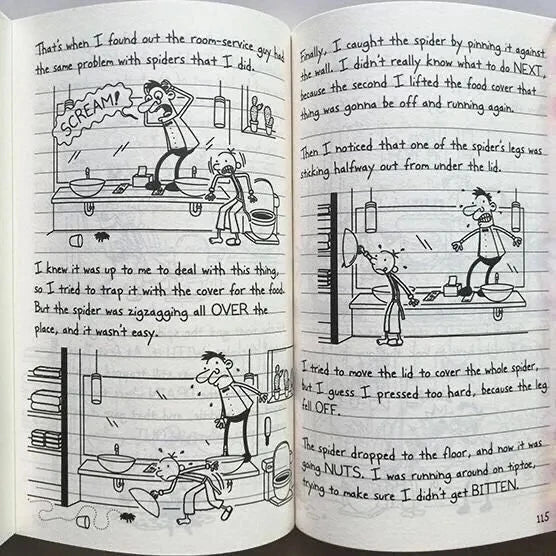 That's when I found out the room-service guy had
the same problem with spiders that I did.
SCREAM!
I knew it was up to me to deal with this thing,
so I tried to trap it with the cover for the food.
But the spider was zigzagging all OVER the
place, and it wasn't easy.
Finally, I caught the spider by pinning it against
the wall. I didn't really know what to do NEXT,
because the second I lifted the food cover that
thing was gonna be off and running again.
Then I noticed that one of the spider's legs was
sticking halfway out from under the lid.
I tried to move the lid to cover the whole spider,
but I guess I pressed too hard, because the leg
fell OFF.
The spider dropped to the floor, and now it was
going NUTS. I was running around on tiptoe,
trying to make sure I didn't get BITTEN.
115